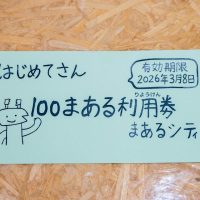 はじめてさん
有効期限
2026年3月8日
りようけん
100まある利用券
まあるシティ